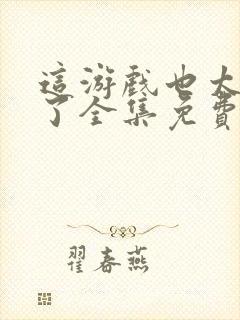 這游戲也太
了全集免費
翟春燕